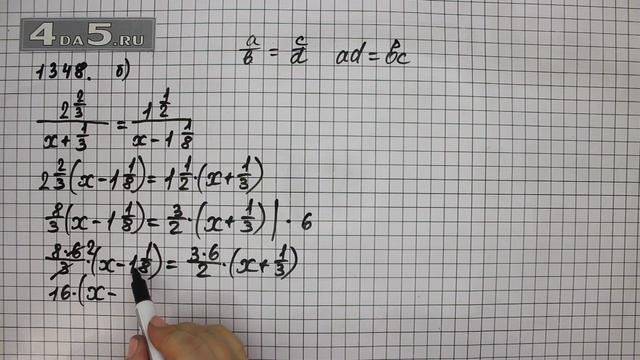 4DA5.RU
a/b = c/d ad = bc
1348. б)
2 2/3 / (x + 1/3) = 1 1/2 / (x - 1 1/8)
2 2/3 (x - 1 1/8) = 1 1/2 · (x + 1/3)
8/3 (x - 1 1/8) = 3/2 · (x + 1/3) | · 6
8·6 2/3 · (x - 1 1/8) = 3·6/2 · (x + 1/3)
16 · (x -